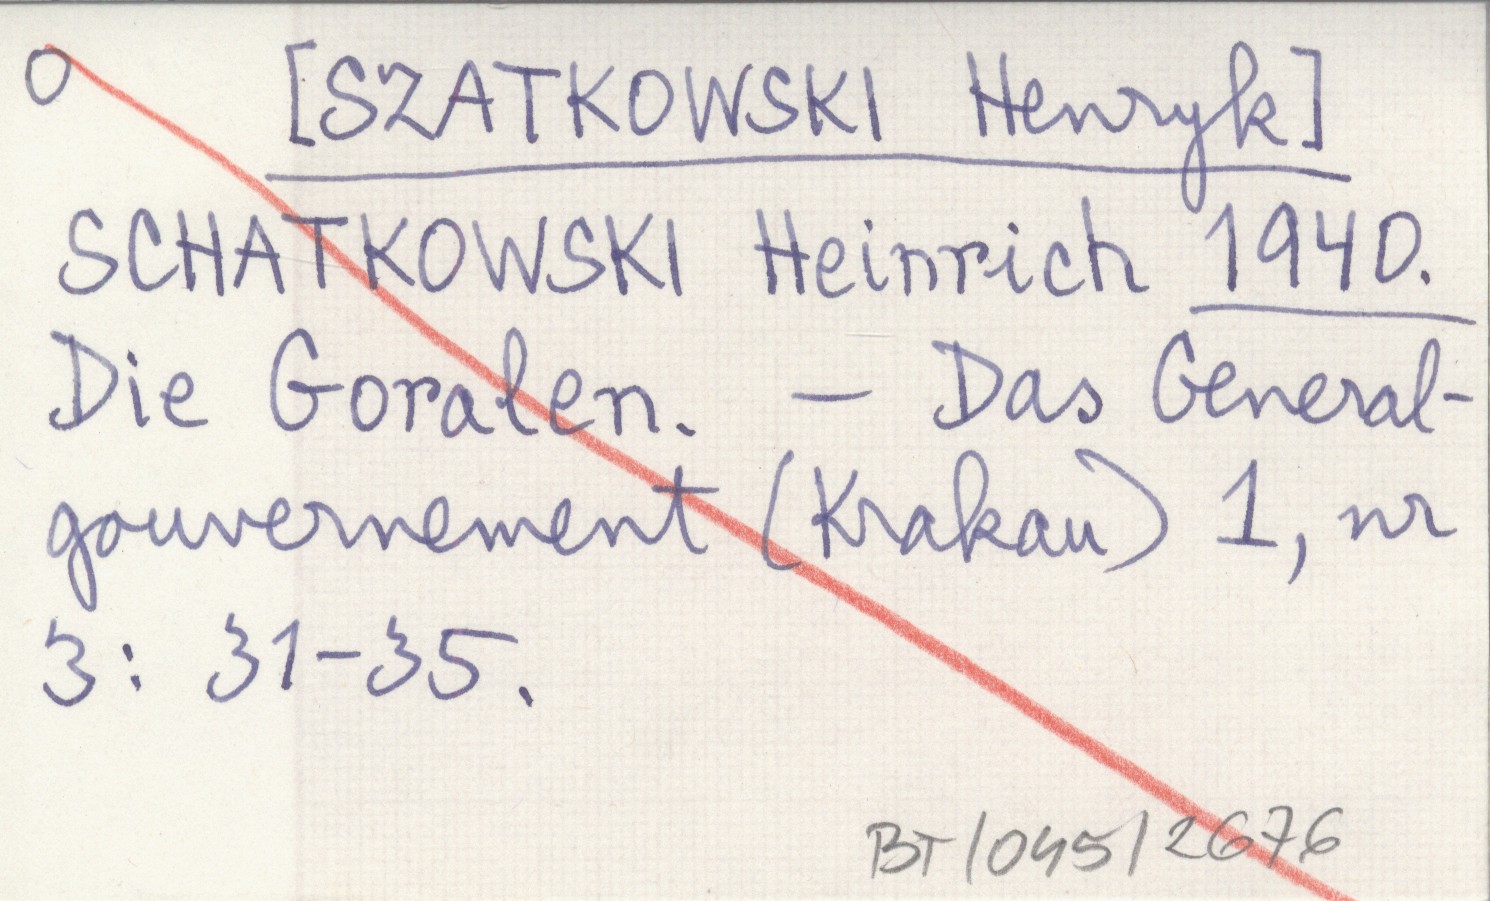 O [SZATKOWSKI Henryk]
SCHATKOWSKI Heinrich 1940.
Die Goralen. – Das General-
gouvernement (Krakau) 1, nr
3: 31-35.
BT/045/2676